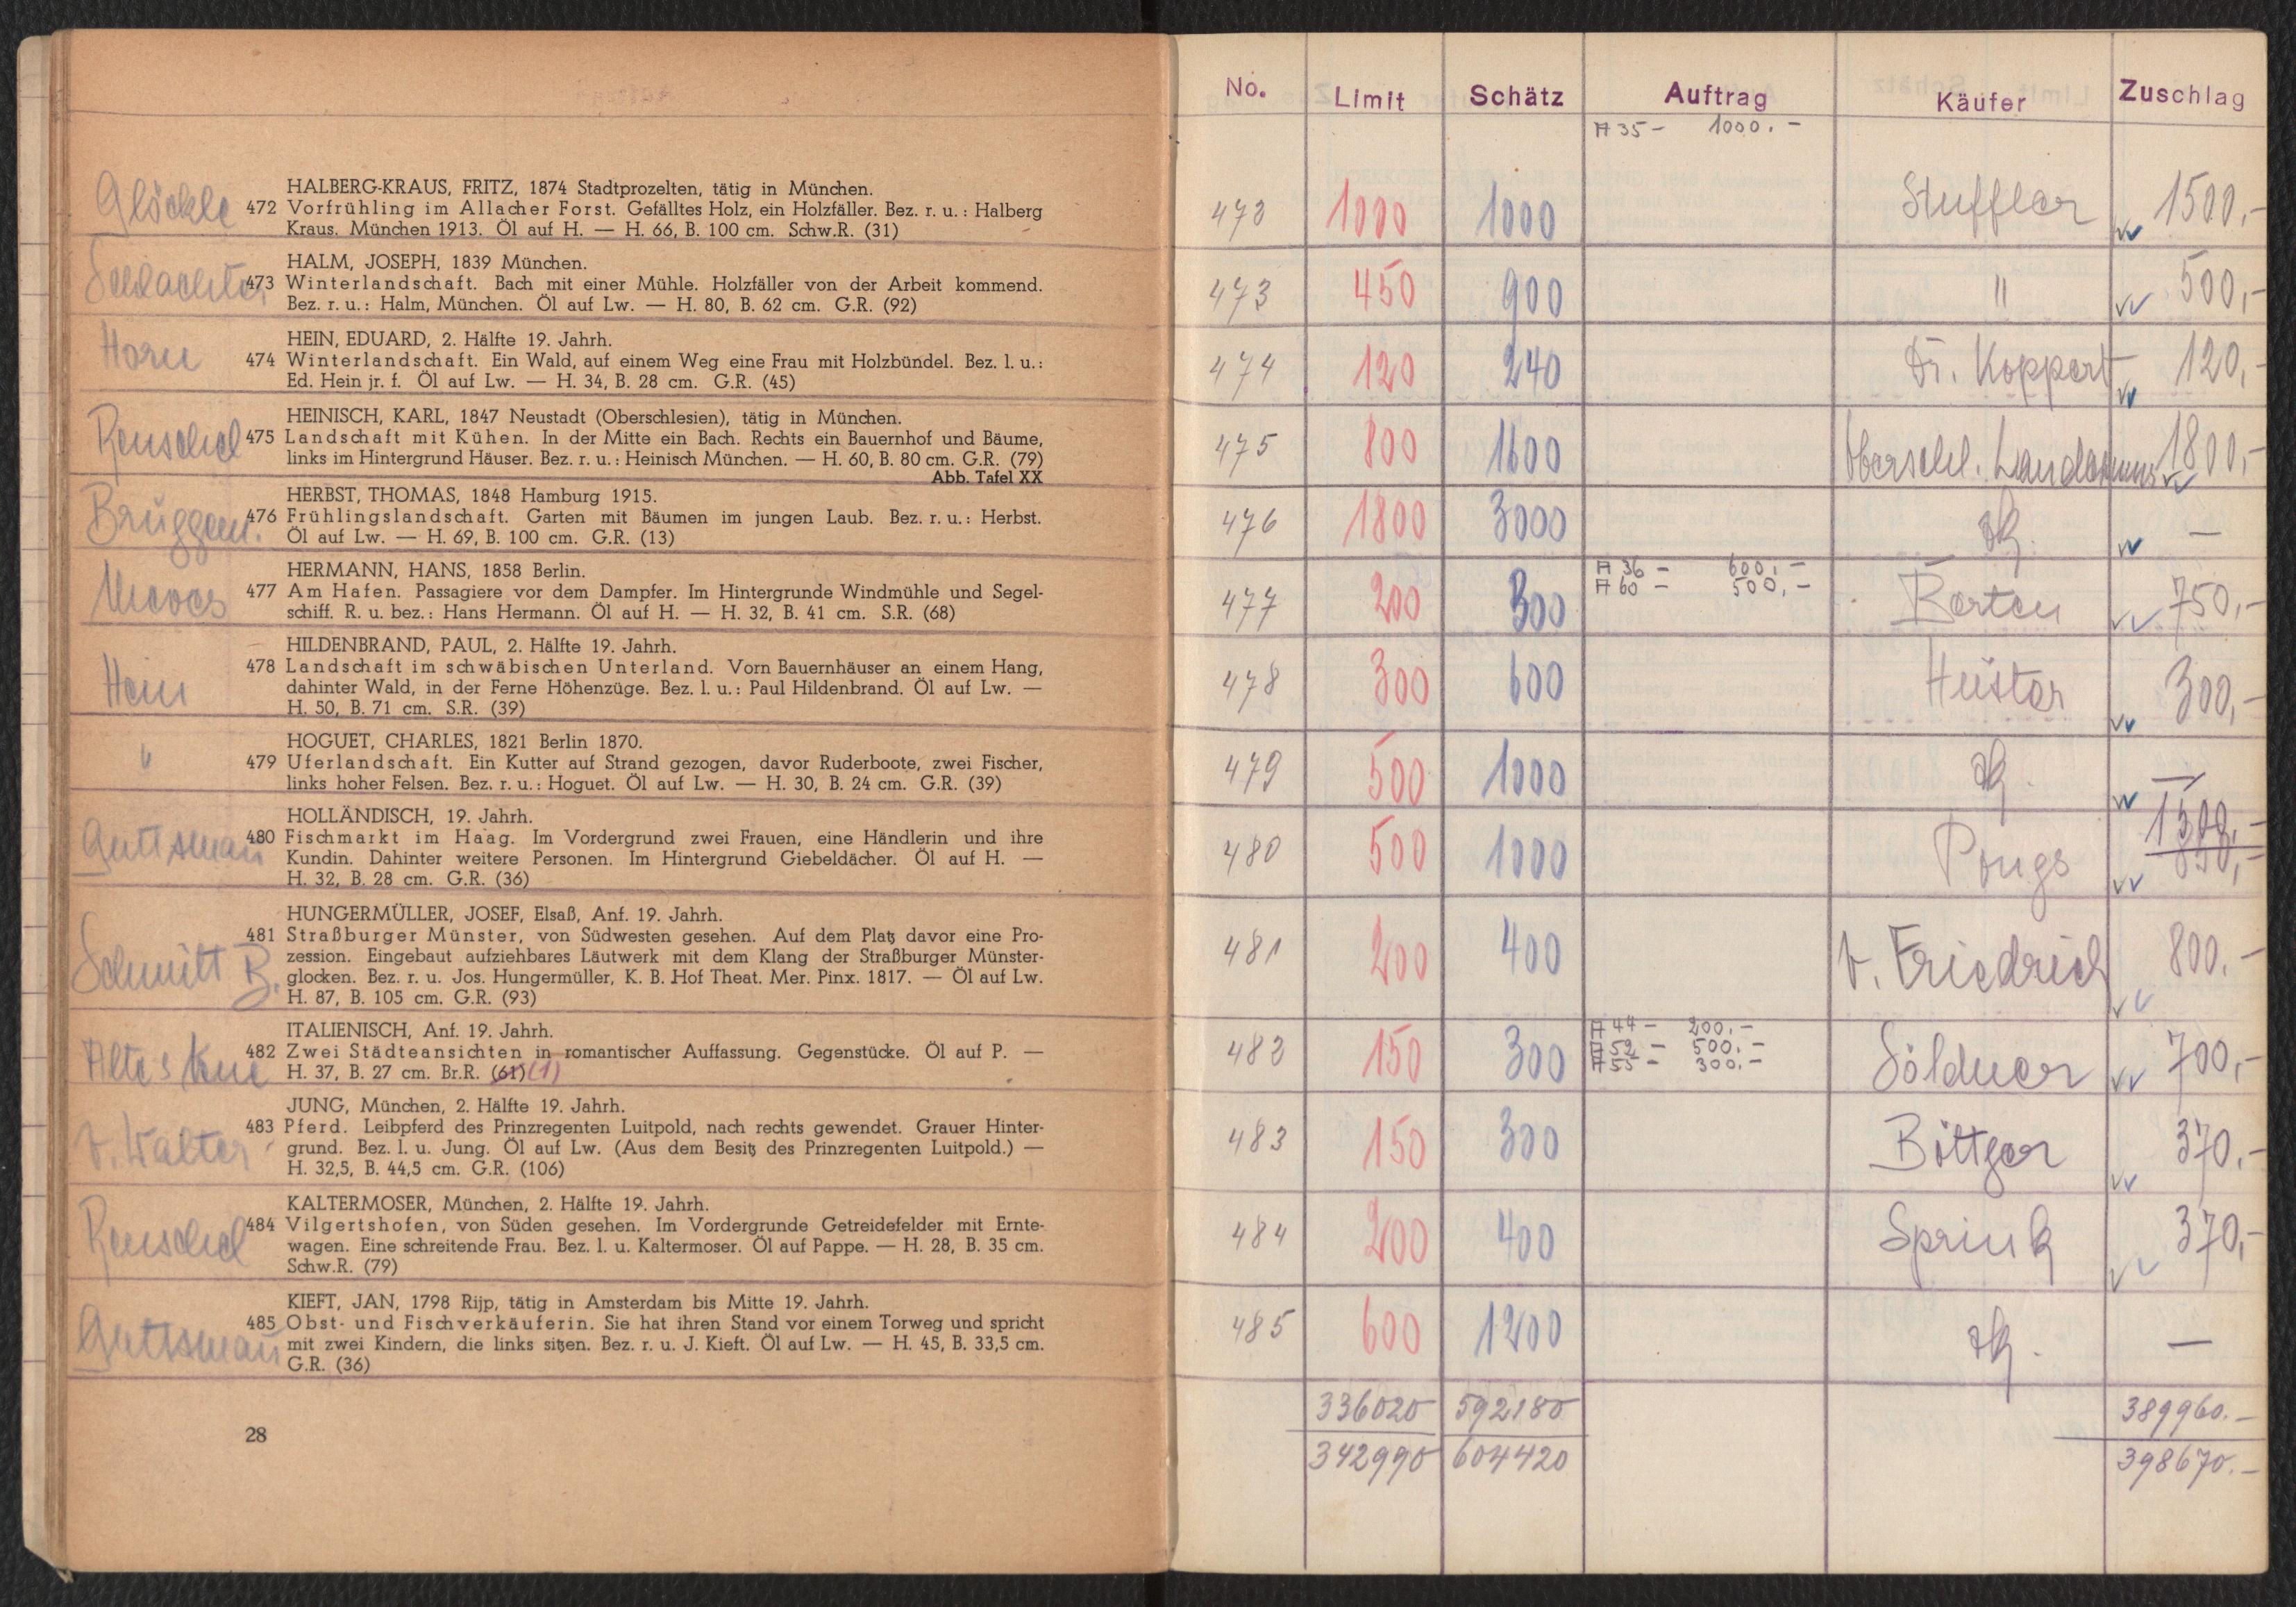 Glöckle
HALBERG-KRAUS, FRITZ, 1874 Stadtprozelten, tätig in München.
472 Vorfrühling im Allacher Forst. Gefälltes Holz, ein Holzfäller. Bez. r. u.: Halberg
Kraus. München 1913. Öl auf H. — H. 66, B. 100 cm. Schw.R. (31)
HALM, JOSEPH, 1839 München.
473 Winterlandschaft. Bach mit einer Mühle. Holzfäller von der Arbeit kommend.
Bez. r. u.: Halm, München. Öl auf Lw. — H. 80, B. 62 cm. G.R. (92)
Horn
HEIN, EDUARD, 2. Hälfte 19. Jahrh.
474 Winterlandschaft. Ein Wald, auf einem Weg eine Frau mit Holzbündel. Bez. l. u.:
Ed. Hein jr. f. Öl auf Lw. — H. 34, B. 28 cm. G.R. (45)
Renschel
HEINISCH, KARL, 1847 Neustadt (Oberschlesien), tätig in München.
475 Landschaft mit Kühen. In der Mitte ein Bach. Rechts ein Bauernhof und Bäume,
links im Hintergrund Häuser. Bez. r. u.: Heinisch München. — H. 60, B. 80 cm. G.R. (79)
Abb. Tafel XX
Brüggem.
HERBST, THOMAS, 1848 Hamburg 1915.
476 Frühlingslandschaft. Garten mit Bäumen im jungen Laub. Bez. r. u.: Herbst.
Öl auf Lw. — H. 69, B. 100 cm. G.R. (13)
HERMANN, HANS, 1858 Berlin.
477 Am Hafen. Passagiere vor dem Dampfer. Im Hintergrunde Windmühle und Segel-
schiff. R. u. bez.: Hans Hermann. Öl auf H. — H. 32, B. 41 cm. S.R. (68)
Hein
HILDENBRAND, PAUL, 2. Hälfte 19. Jahrh.
478 Landschaft im schwäbischen Unterland. Vorn Bauernhäuser an einem Hang,
dahinter Wald, in der Ferne Höhenzüge. Bez. l. u.: Paul Hildenbrand. Öl auf Lw. —
H. 50, B. 71 cm. S.R. (39)
"
HOGUET, CHARLES, 1821 Berlin 1870.
479 Uferlandschaft. Ein Kutter auf Strand gezogen, davor Ruderboote, zwei Fischer,
links hoher Felsen. Bez. r. u.: Hoguet. Öl auf Lw. — H. 30, B. 24 cm. G.R. (39)
Guttsman
HOLLÄNDISCH, 19. Jahrh.
480 Fischmarkt im Haag. Im Vordergrund zwei Frauen, eine Händlerin und ihre
Kundin. Dahinter weitere Personen. Im Hintergrund Giebeldächer. Öl auf H. —
H. 32, B. 28 cm. G.R. (36)
Schmitt B.
HUNGERMÜLLER, JOSEF, Elsaß, Anf. 19. Jahrh.
481 Straßburger Münster, von Südwesten gesehen. Auf dem Platz davor eine Pro-
zession. Eingebaut aufziehbares Läutwerk mit dem Klang der Straßburger Münster-
glocken. Bez. r. u. Jos. Hungermüller, K. B. Hof Theat. Mer. Pinx. 1817. — Öl auf Lw.
H. 87, B. 105 cm. G.R. (93)
Altes Ku
ITALIENISCH, Anf. 19. Jahrh.
482 Zwei Städteansichten in romantischer Auffassung. Gegenstücke. Öl auf P. —
H. 37, B. 27 cm. Br.R. (61) (1)
v. Walter
JUNG, München, 2. Hälfte 19. Jahrh.
483 Pferd. Leibpferd des Prinzregenten Luitpold, nach rechts gewendet. Grauer Hinter-
grund. Bez. l. u. Jung. Öl auf Lw. (Aus dem Besitz des Prinzregenten Luitpold.) —
H. 32,5, B. 44,5 cm. G.R. (106)
Renschel
KALTERMOSER, München, 2. Hälfte 19. Jahrh.
484 Vilgertshofen, von Süden gesehen. Im Vordergrunde Getreidefelder mit Ernte-
wagen. Eine schreitende Frau. Bez. l. u. Kaltermoser. Öl auf Pappe. — H. 28, B. 35 cm.
Schw.R. (79)
Guttsman
KIEFT, JAN, 1798 Rijp, tätig in Amsterdam bis Mitte 19. Jahrh.
485 Obst- und Fischverkäuferin. Sie hat ihren Stand vor einem Torweg und spricht
mit zwei Kindern, die links sitzen. Bez. r. u. J. Kieft. Öl auf Lw. — H. 45, B. 33,5 cm.
G.R. (36)
28
No. Limit Schätz Auftrag Käufer Zuschlag
A 35 - 1000.-
472 1000 1000 Stuffler 1500,-
473 450 900 " 500,-
474 120 240 Dr. Koppert 120,-
475 800 1600 Oberschl. Landesmus 1800,-
476 1800 3000 —
A 36 - 600.-
A 60 - 500.-
477 200 300 Karten 750,-
478 300 600 Hüster 300,-
479 500 1000 —
1300.-
480 500 1000 Pongs 850,-
481 200 400 v. Friedrich 800.-
A 44 - 200.-
A 52 - 500.-
A 55 - 300.-
482 150 300 Söldner 700,-
483 150 300 Böttger 370.-
484 200 400 Sprink 370,-
485 600 1200 —
336020 592180 389960.-
342990 604420 398670.-